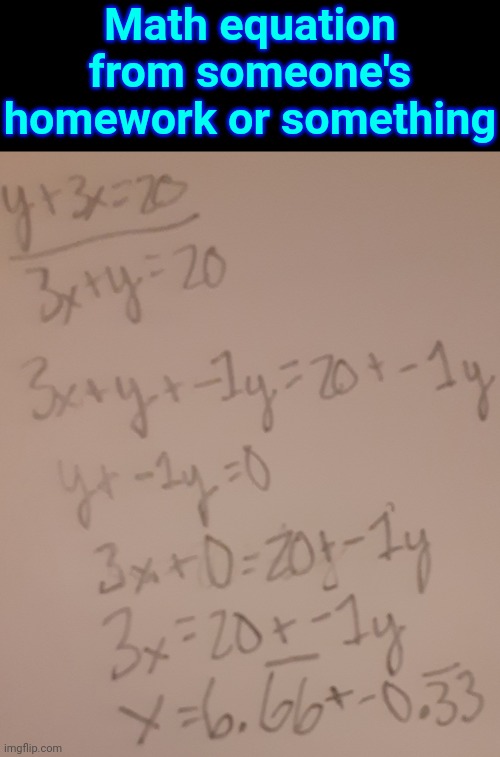 Math equation
from someone's
homework or something
y+3x=20
3x+y=20
3x+y+-1y=20+-1y
y+-1y=0
3x+0=20+-1y
3x=20+-1y
x=6.66+-0.33
imgflip.com